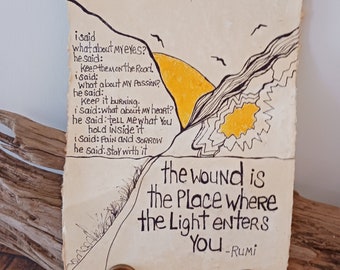 i said
what about my eyes?
he said:
Keep them on the Road.
i said:
What about my passion?
he said:
Keep it burning.
i said: what about my heart?
he said: tell me what you
hold inside it
i said: Pain and sorrow
he said: stay with it
the wound is
the Place where
the Light enters
you -Rumi